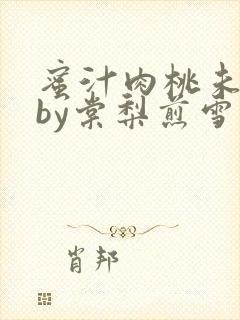 蜜汁肉桃未
by棠梨煎雪
肖邦